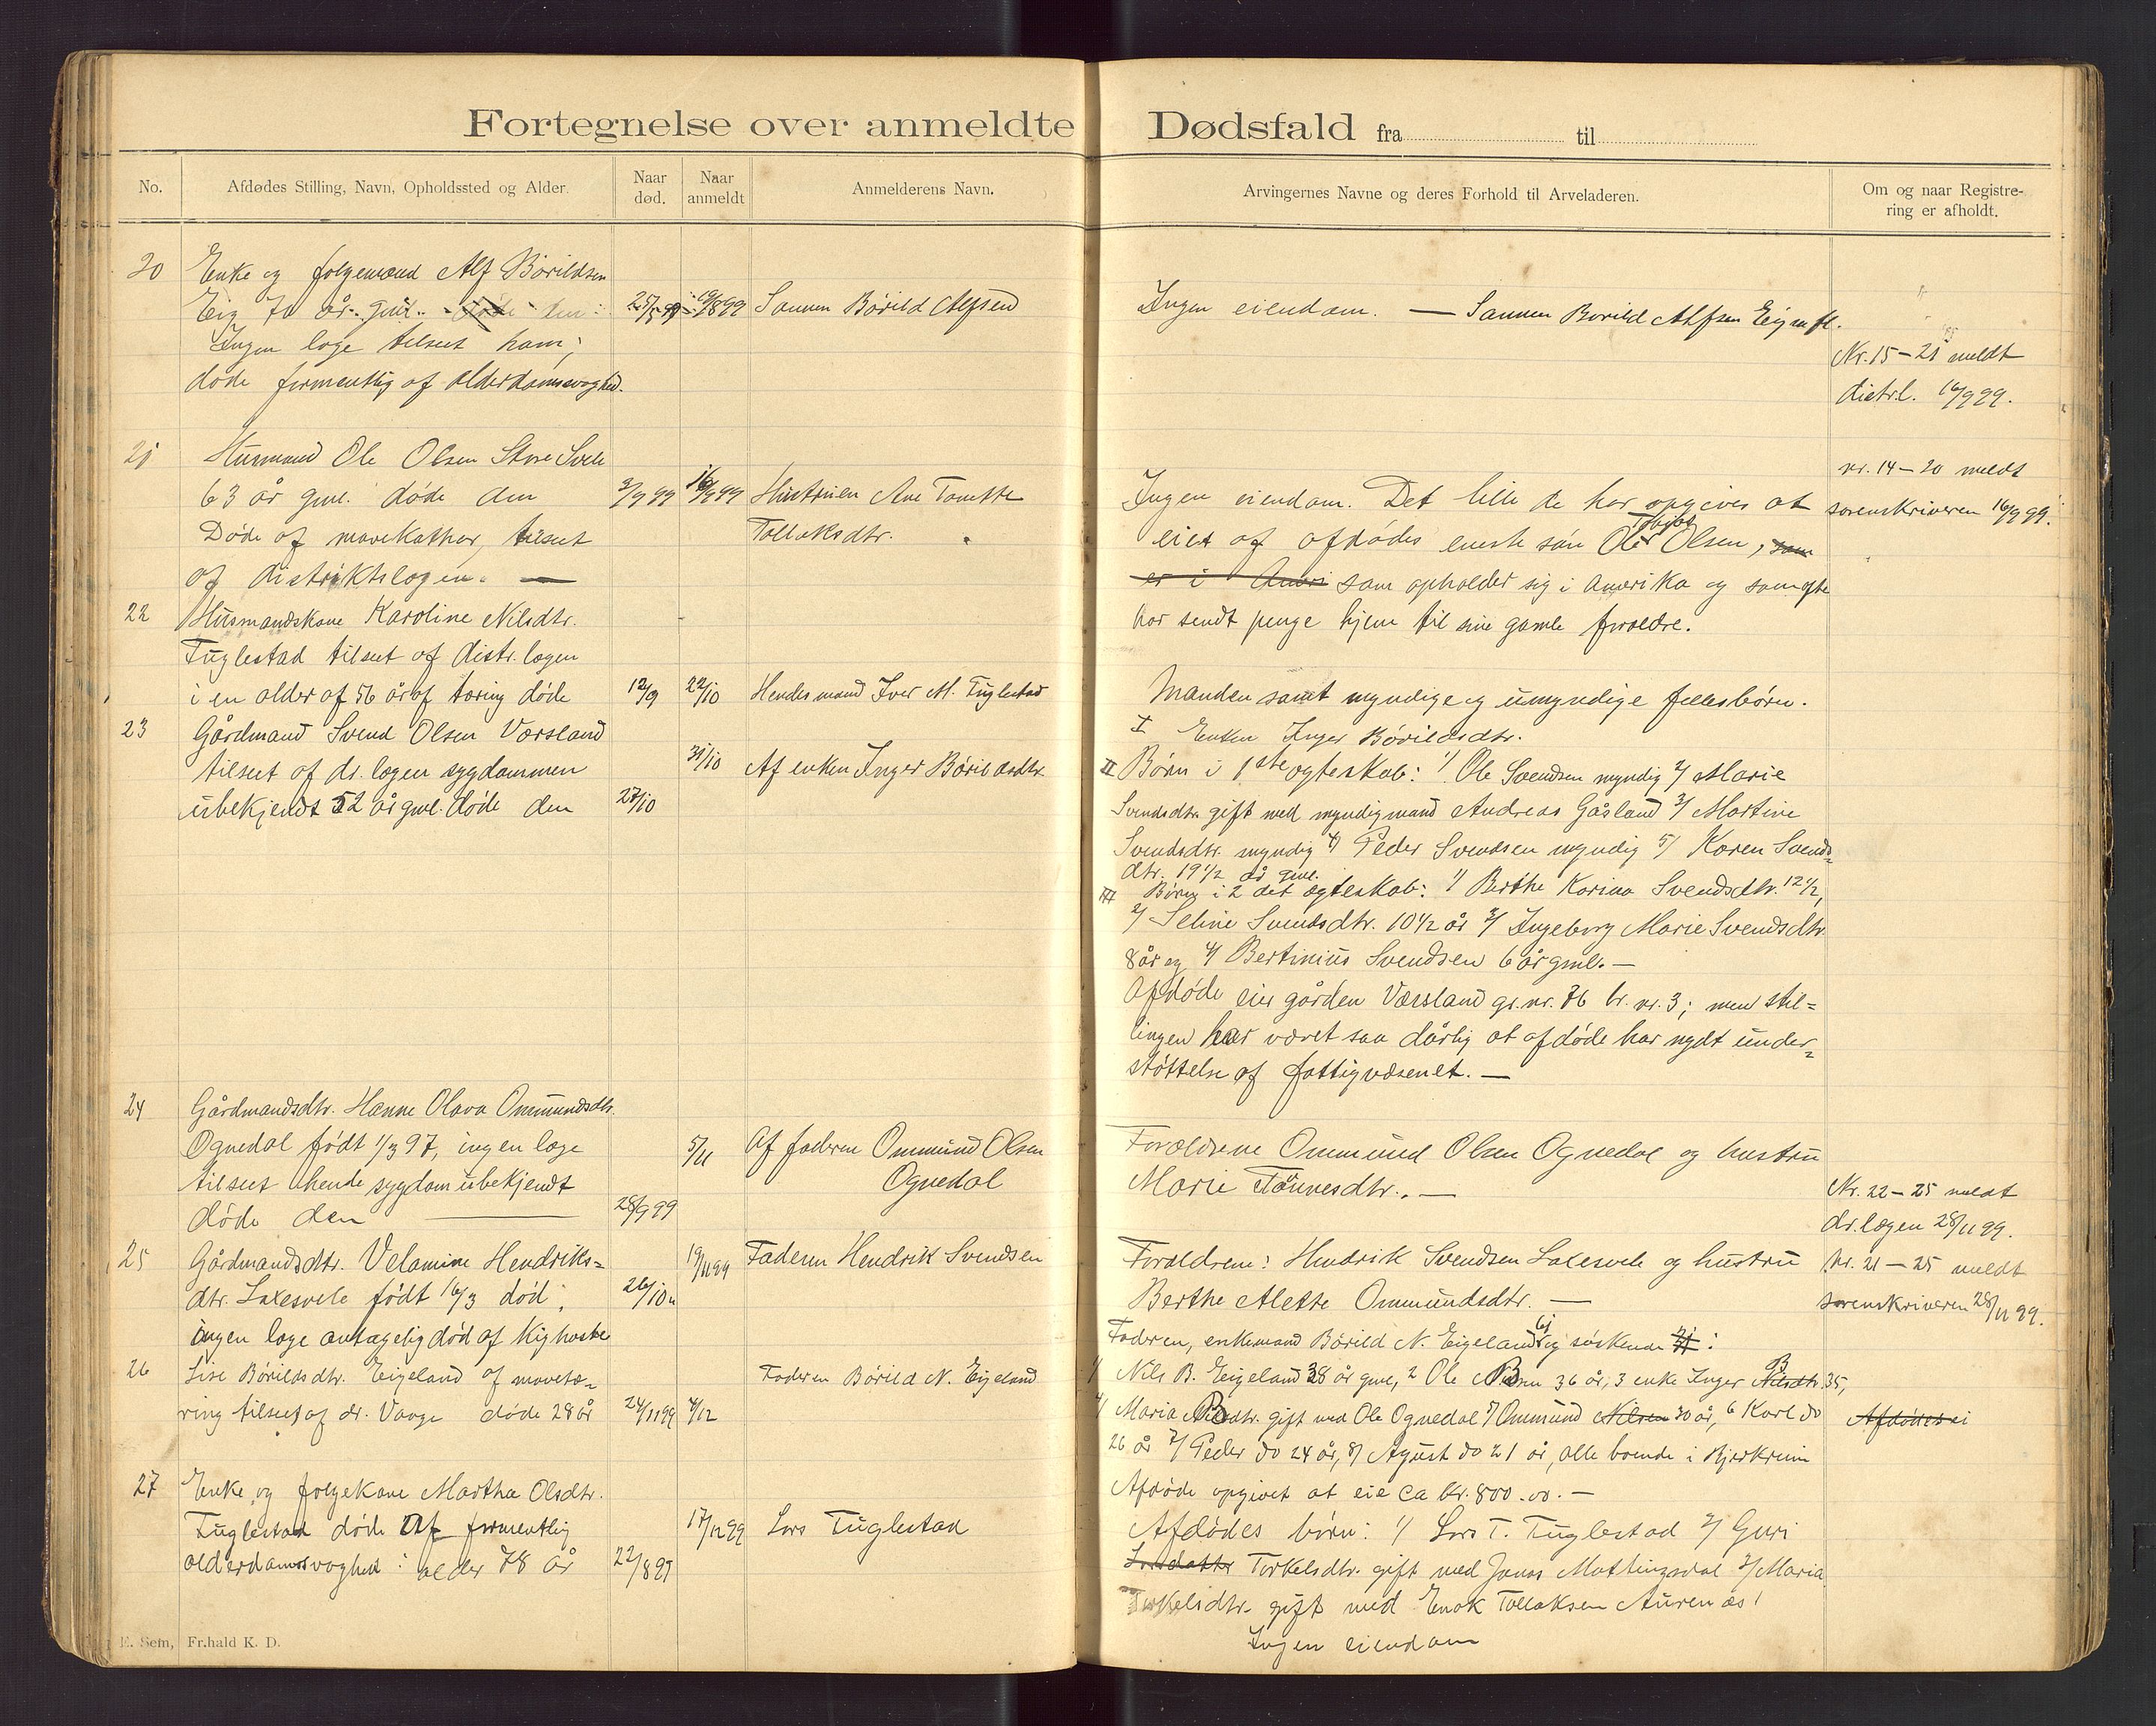 Fortegnelse over anmeldte Dødsfald fra til
No.
Afdødes Stilling, Navn, Opholdssted og Alder.
Naar død.
Naar anmeldt
Anmelderens Navn.
Arvingernes Navne og deres Forhold til Arveladeren.
Om og naar Registre-
ring er afholdt.
20 Enke og folgemand Alf Börildsen
Eig 70 år gml.
25/5 99 19/8 99 Sönnen Börild Alfsen
Ingen læge tilseet ham;
døde formentlig af alderdomssvaghed.
Ingen eiendom. — Sönnen Borild Alfsen Eig m fl.
Nr. 15 - 21 meldt
distr.l. 16/9 99.
21 Husmand Ole Olsen Store Svele
63 år gml. døde den 3/9 99 16/9 99 Hustruen Ane Tomette
Døde af mavekathar, tilseet Tollaksdtr.
af distriktslægen. —
nr. 14 - 20 meldt
sorenskriveren 16/9 99.
Ingen eiendom. Det lille de har opgives at
eies af afdødes eneste søn Ole Tobias Olsen, som
er i Ameri som opholder sig i Amerika og som ofte
har sendt penge hjem til sine gamle forældre.
22 Husmandskone Karoline Nilsdtr.
Fuglestad tilseet af distr. lægen
i en alder af 56 år af tæring døde 12/9 22/10 Hendes mand Iver M. Fuglestad
Manden samt myndige og umyndige fællesbørn.
23 Gårdmand Svend Olsen Værsland
tilseet af dr. lægen sygdommen 31/10 Af enken Inger Börildsdtr.
ubekjendt 52 år gml. døde den 27/10
I Enken Inger Börildsdtr.
II Børn i 1ste ægteskab: 1/ Ole Svendsen myndig 2/ Marie
Svendsdtr. gift med myndigmand Andreas Gåsland 3/ Martine
Svendsdtr. myndig 4/ Peder Svendsen myndig 5/ Karen Svends=
dtr. 19 1/2 år gml.
III Børn i 2det ægteskab: 1/ Berthe Karina Svendsdtr. 12 1/2,
2/ Seline Svendsdtr. 10 1/2 år 3/ Ingeborg Marie Svendsdtr.
8 år og 4/ Bertinius Svendsen 6 år gml. —
Afdøde eier gården Værsland gr. nr. 76 br. nr. 3; men stil=
lingen har været saa dårlig at afdøde har nydt under=
støttelse af fattigvæsenet. —
24 Gårdmandsdtr. Hanne Olava Ommundsdtr.
Ognedal født 1/3 97, ingen læge 5/11 Af faderen Ommund Olsen
tilseet hende sygdom ubekjendt Ognedal
døde den 28/9 99
Forældrene Ommund Olsen Ognedal og hustru
Marie Tönnesdtr. —
Nr. 22 - 25 meldt
dr. lægen 28/11 99.
25 Gårdmandsdtr. Velamine Hendriks=
dtr. Laxesvele født 16/3 død 26/10 19/11 99 Faderen Hendrik Svendsen
ingen læge antagelig død af kighoste
Forældrene: Hendrik Svendsen Laxesvele og hustru
Berthe Alette Ommundsdtr. —
nr. 21 - 25 meldt
sorenskriveren 28/11 99.
26 Lise Börildsdtr. Eigeland af mavetæ=
ring tilseet af dr. Vaage døde 28 år 24/11 99 4/12 Faderen Börild N. Eigeland
Faderen, enkemand Börild N. Eigeland og søskende:
1/ Nils B. Eigeland 38 år gml, 2 Ole B 36 år, 3 enke Inger B Nilsdtr. 35,
4/ Maria B dtr. gift med Ole Ognedal 5/ Ommund Nilsen 30 år, 6 Karl do
26 år 7/ Peder do 24 år, 8/ Agust do 21 år, alle boende i Bjerkreim
Afdøde opgivet at eie ca kr. 800.00. —
Afdødes ei
27 Enke og folgekone Martha Olsdtr.
Fuglestad døde af formentlig 17/12 99 Lars Fuglestad
alderdomssvaghed: alder 78 år 22/8 97
Afdødes børn: 1/ Lars T. Fuglestad 2/ Guri
Larsdatter Torkelsdtr. gift med Jonas Matningsdal 3/ Maria
Torkelsdtr. gift med Enok Tollaksen Aurenæs!
Ingen eiendom
E. Sem, Fr.hald K. D.